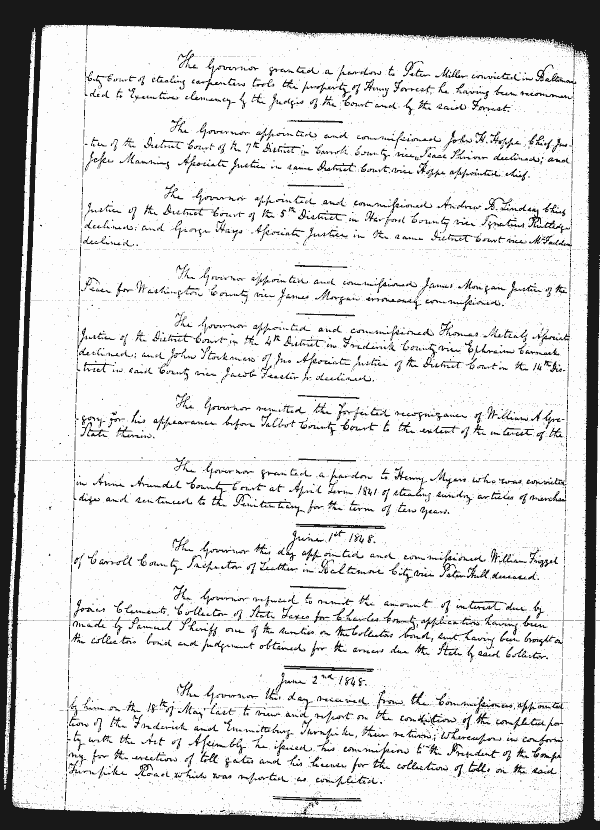 The Governor granted a pardon to Peter Miller convicted in Baltimore
City Court of stealing carpenters tools the property of Henry Forrest, he having been recommen-
ded to Executive clemency by the Judges of the Court and by the said Forrest.
The Governor appointed and commissioned John H. Hoppe Chief Jus-
tice of the District Court of the 7th District in Carroll County vice Isaac Shriver declined; and
Jesse Manning Associate Justice in same District Court vice Hoppe appointed chief.
The Governor appointed and commissioned Andrew B. Lindsay Chief
Justice of the District Court of the 5th District in Harford County vice Ignatius
declined; and George Hays Associate Justice in the same District Court vice McFadden
declined.
The Governor appointed and commissioned James Mongan Justice of the
Peace for Washington County vice James Morgan erroneously commissioned.
The Governor appointed and commissioned Thomas Metcalf Associate
Justice of the District Court in the 4th District in Frederick County vice Ephraim Carmack
declined; and John Stockman of Jno Associate Justice of the District Court in the 14th Dis-
trict in said County vice Jacob Feaster Jr. declined.
The Governor remitted the forfeited recognizance of William A Gre-
gory for his appearance before Talbot County Court to the extent of the interest of the
State therein.
The Governor granted a pardon to Henry Myers who was convicted
in Anne Arundel County Court at April Term 1841 of stealing sundry articles of merchan-
dize and sentenced to the Penitentiary for the term of ten years.
June 1st 1848.
The Governor this day appointed and commissioned William Frizzel
of Carroll County Inspector of Leather in Baltimore City vice Peter Hull deceased.
The Governor refused to remit the amount of interest due by
Josias Clements, Collector of State Taxes for Charles County, application having been
made by Samuel Sheriff one of the sureties on the Collectors bond, suit having been brought on
the collectors bond and judgment obtained for the arrears due the State by said Collector.
June 2nd 1848.
The Governor this day received from the Commissioners, appointed
by him on the 18th of May last to view and report on the condition of the completed por-
tion of the Frederick and Emmitsburg Turnpike, their return; Whereupon in conform-
ity with the Act of Assembly he issued his commission to the President of the Compa-
ny for the erection of toll gates and his license for the collection of tolls on the said
Turnpike Road which was reported as completed.